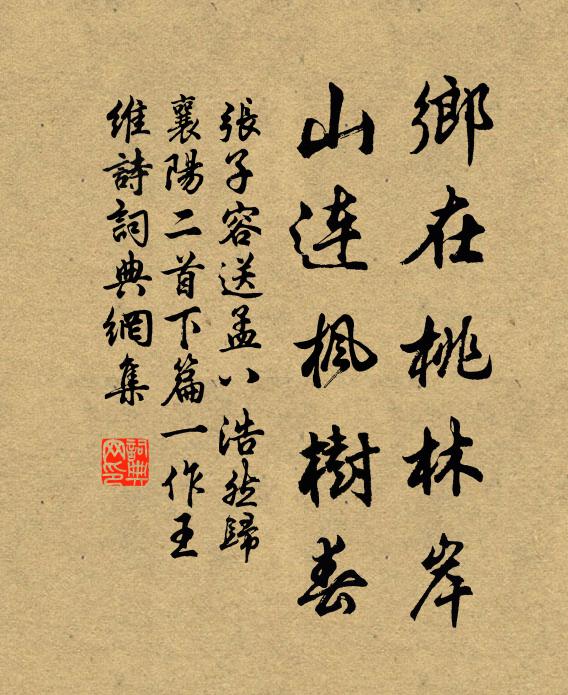 鄉在桃林岸
山連楓樹春
張子容送孟八浩然歸
襄陽二首下篇一作王
維詩詞典網集
詞典网印